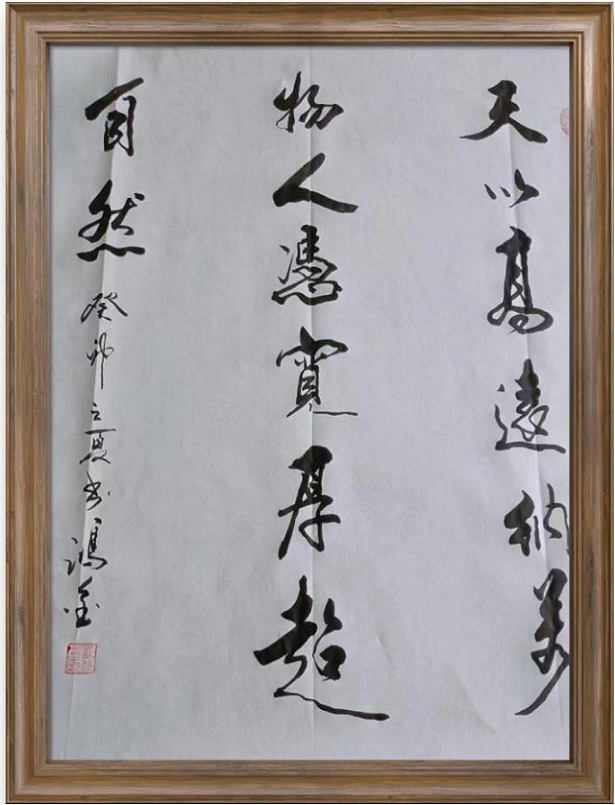 天以高遠納萬
物人憑寬厚超
自然 癸卯立夏書 鴻金